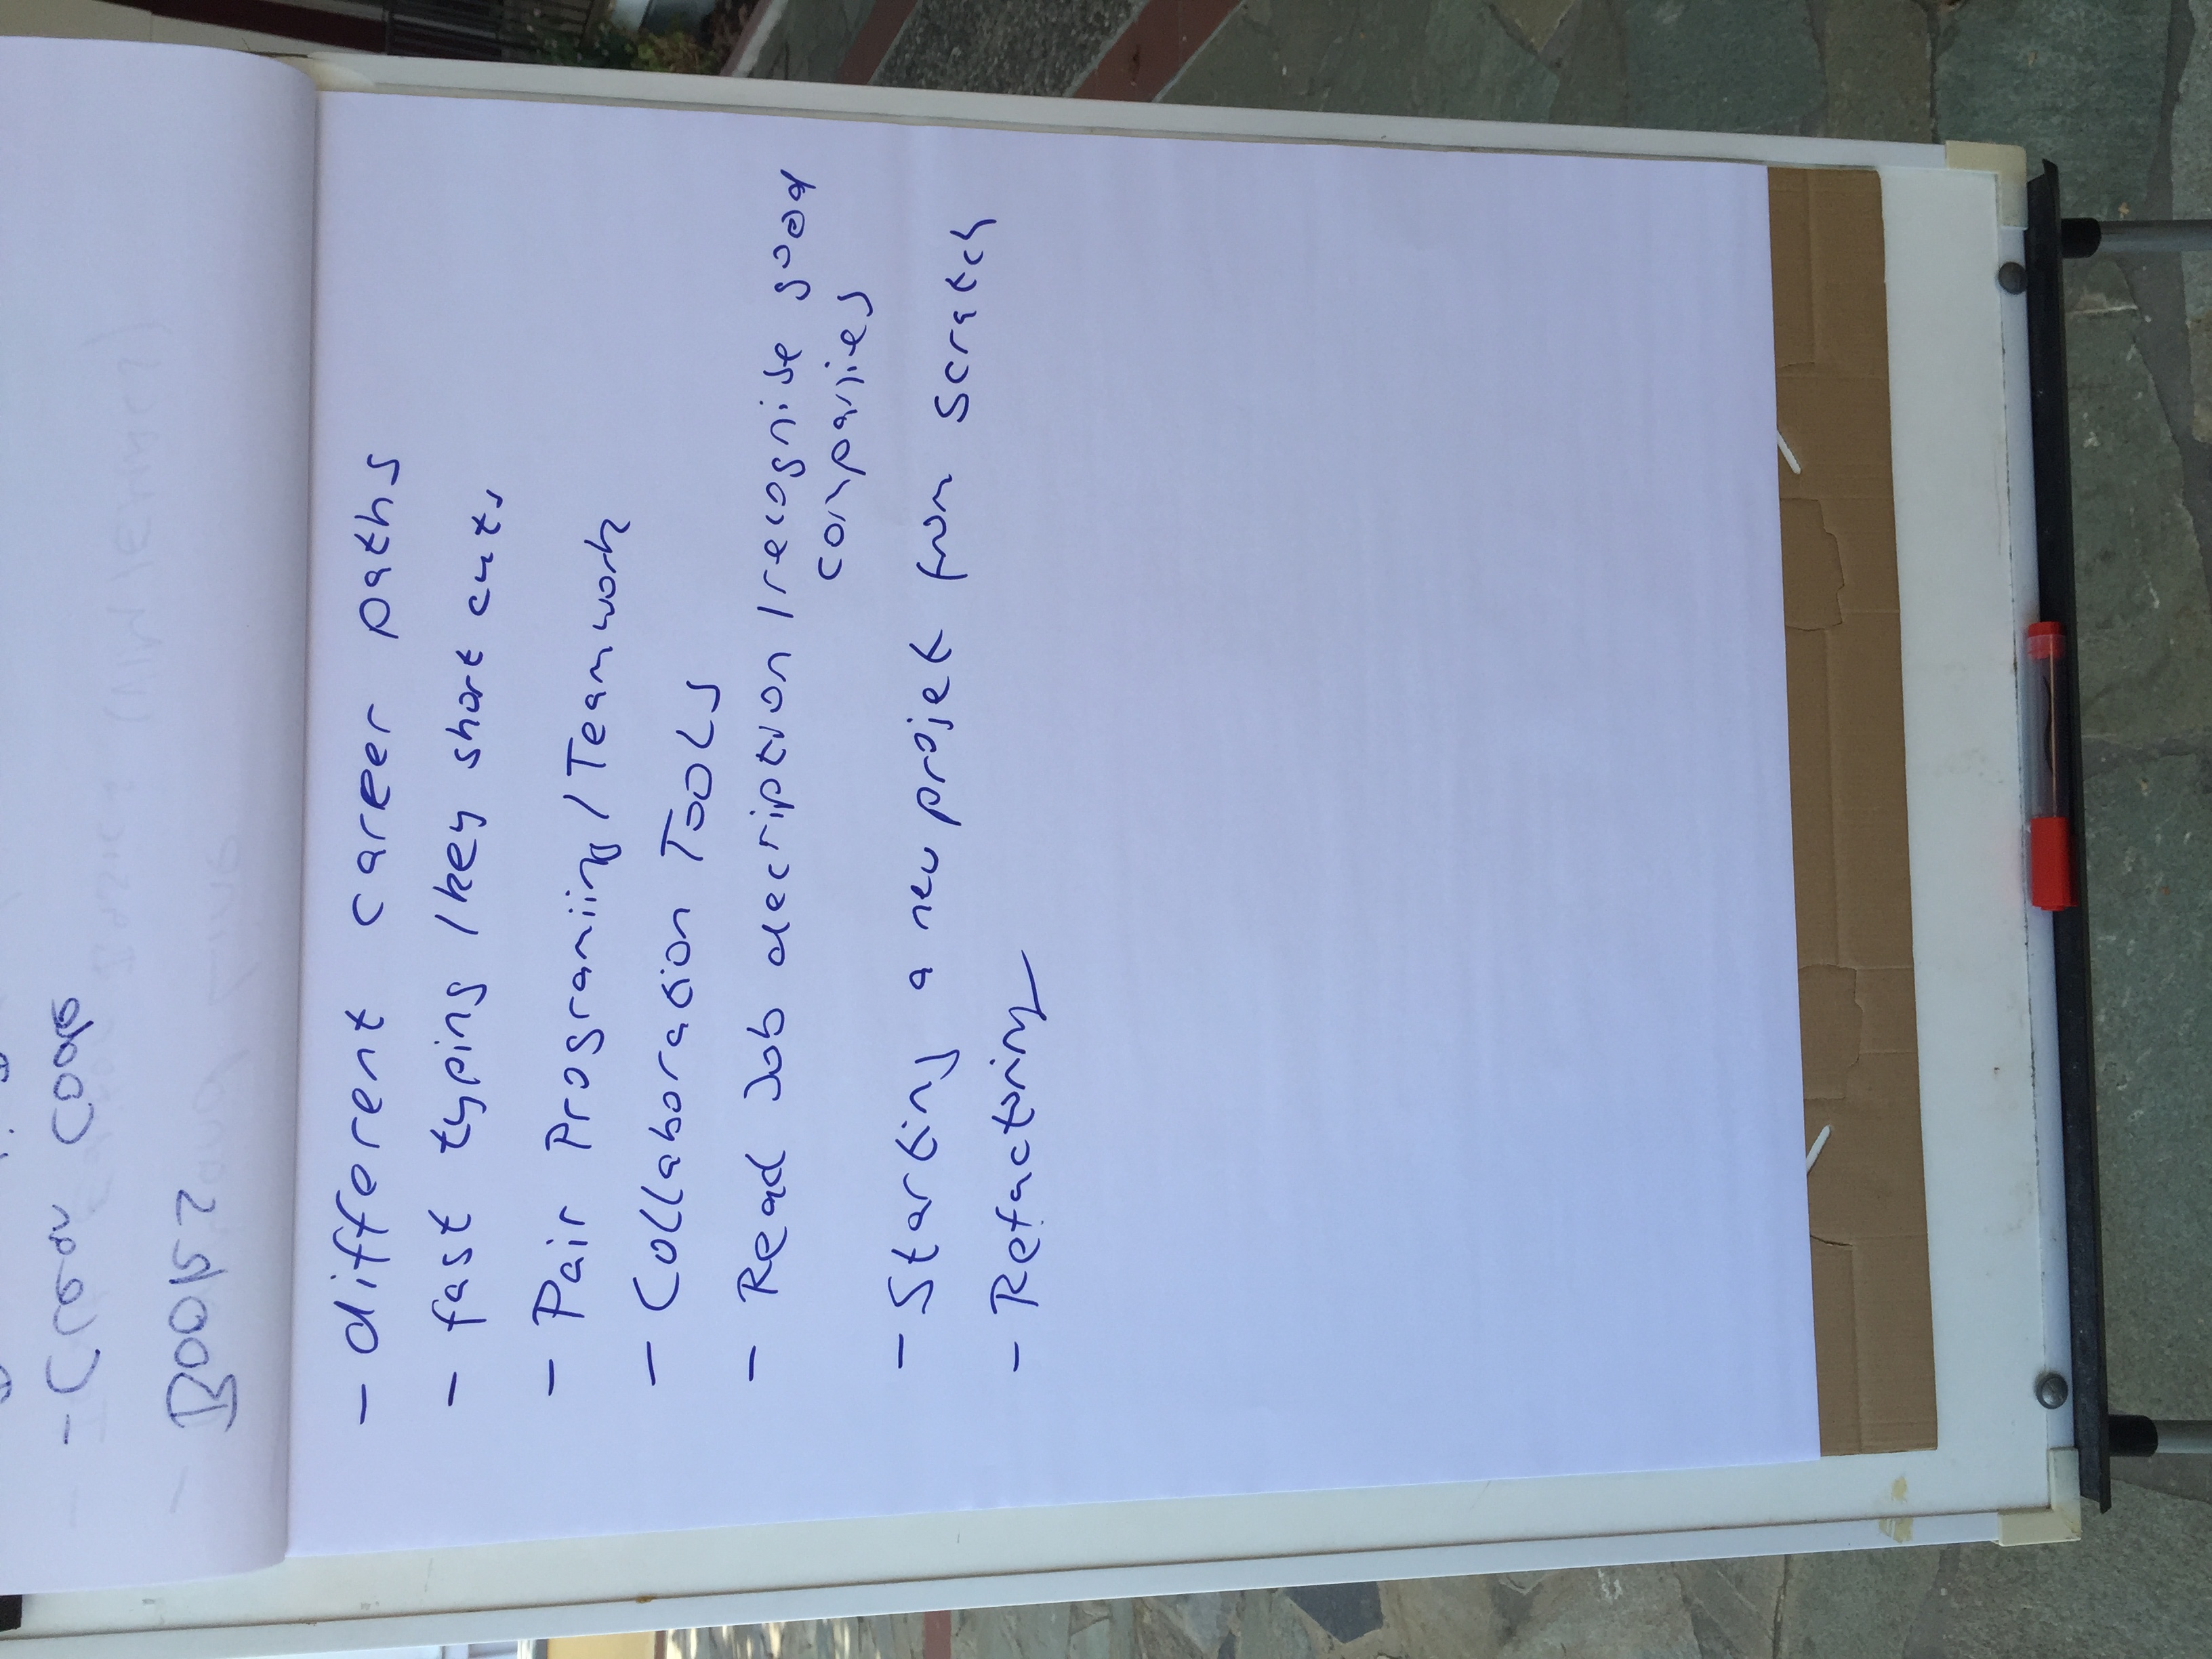 - Clean Code
Books?
- different career paths
- fast typing / key short cuts
- Pair Programiing / Teamwork
- Collaboration Tools
- Read Job decription / recognise good
companies
- Starting a new projekt from scratch
- Refactoring